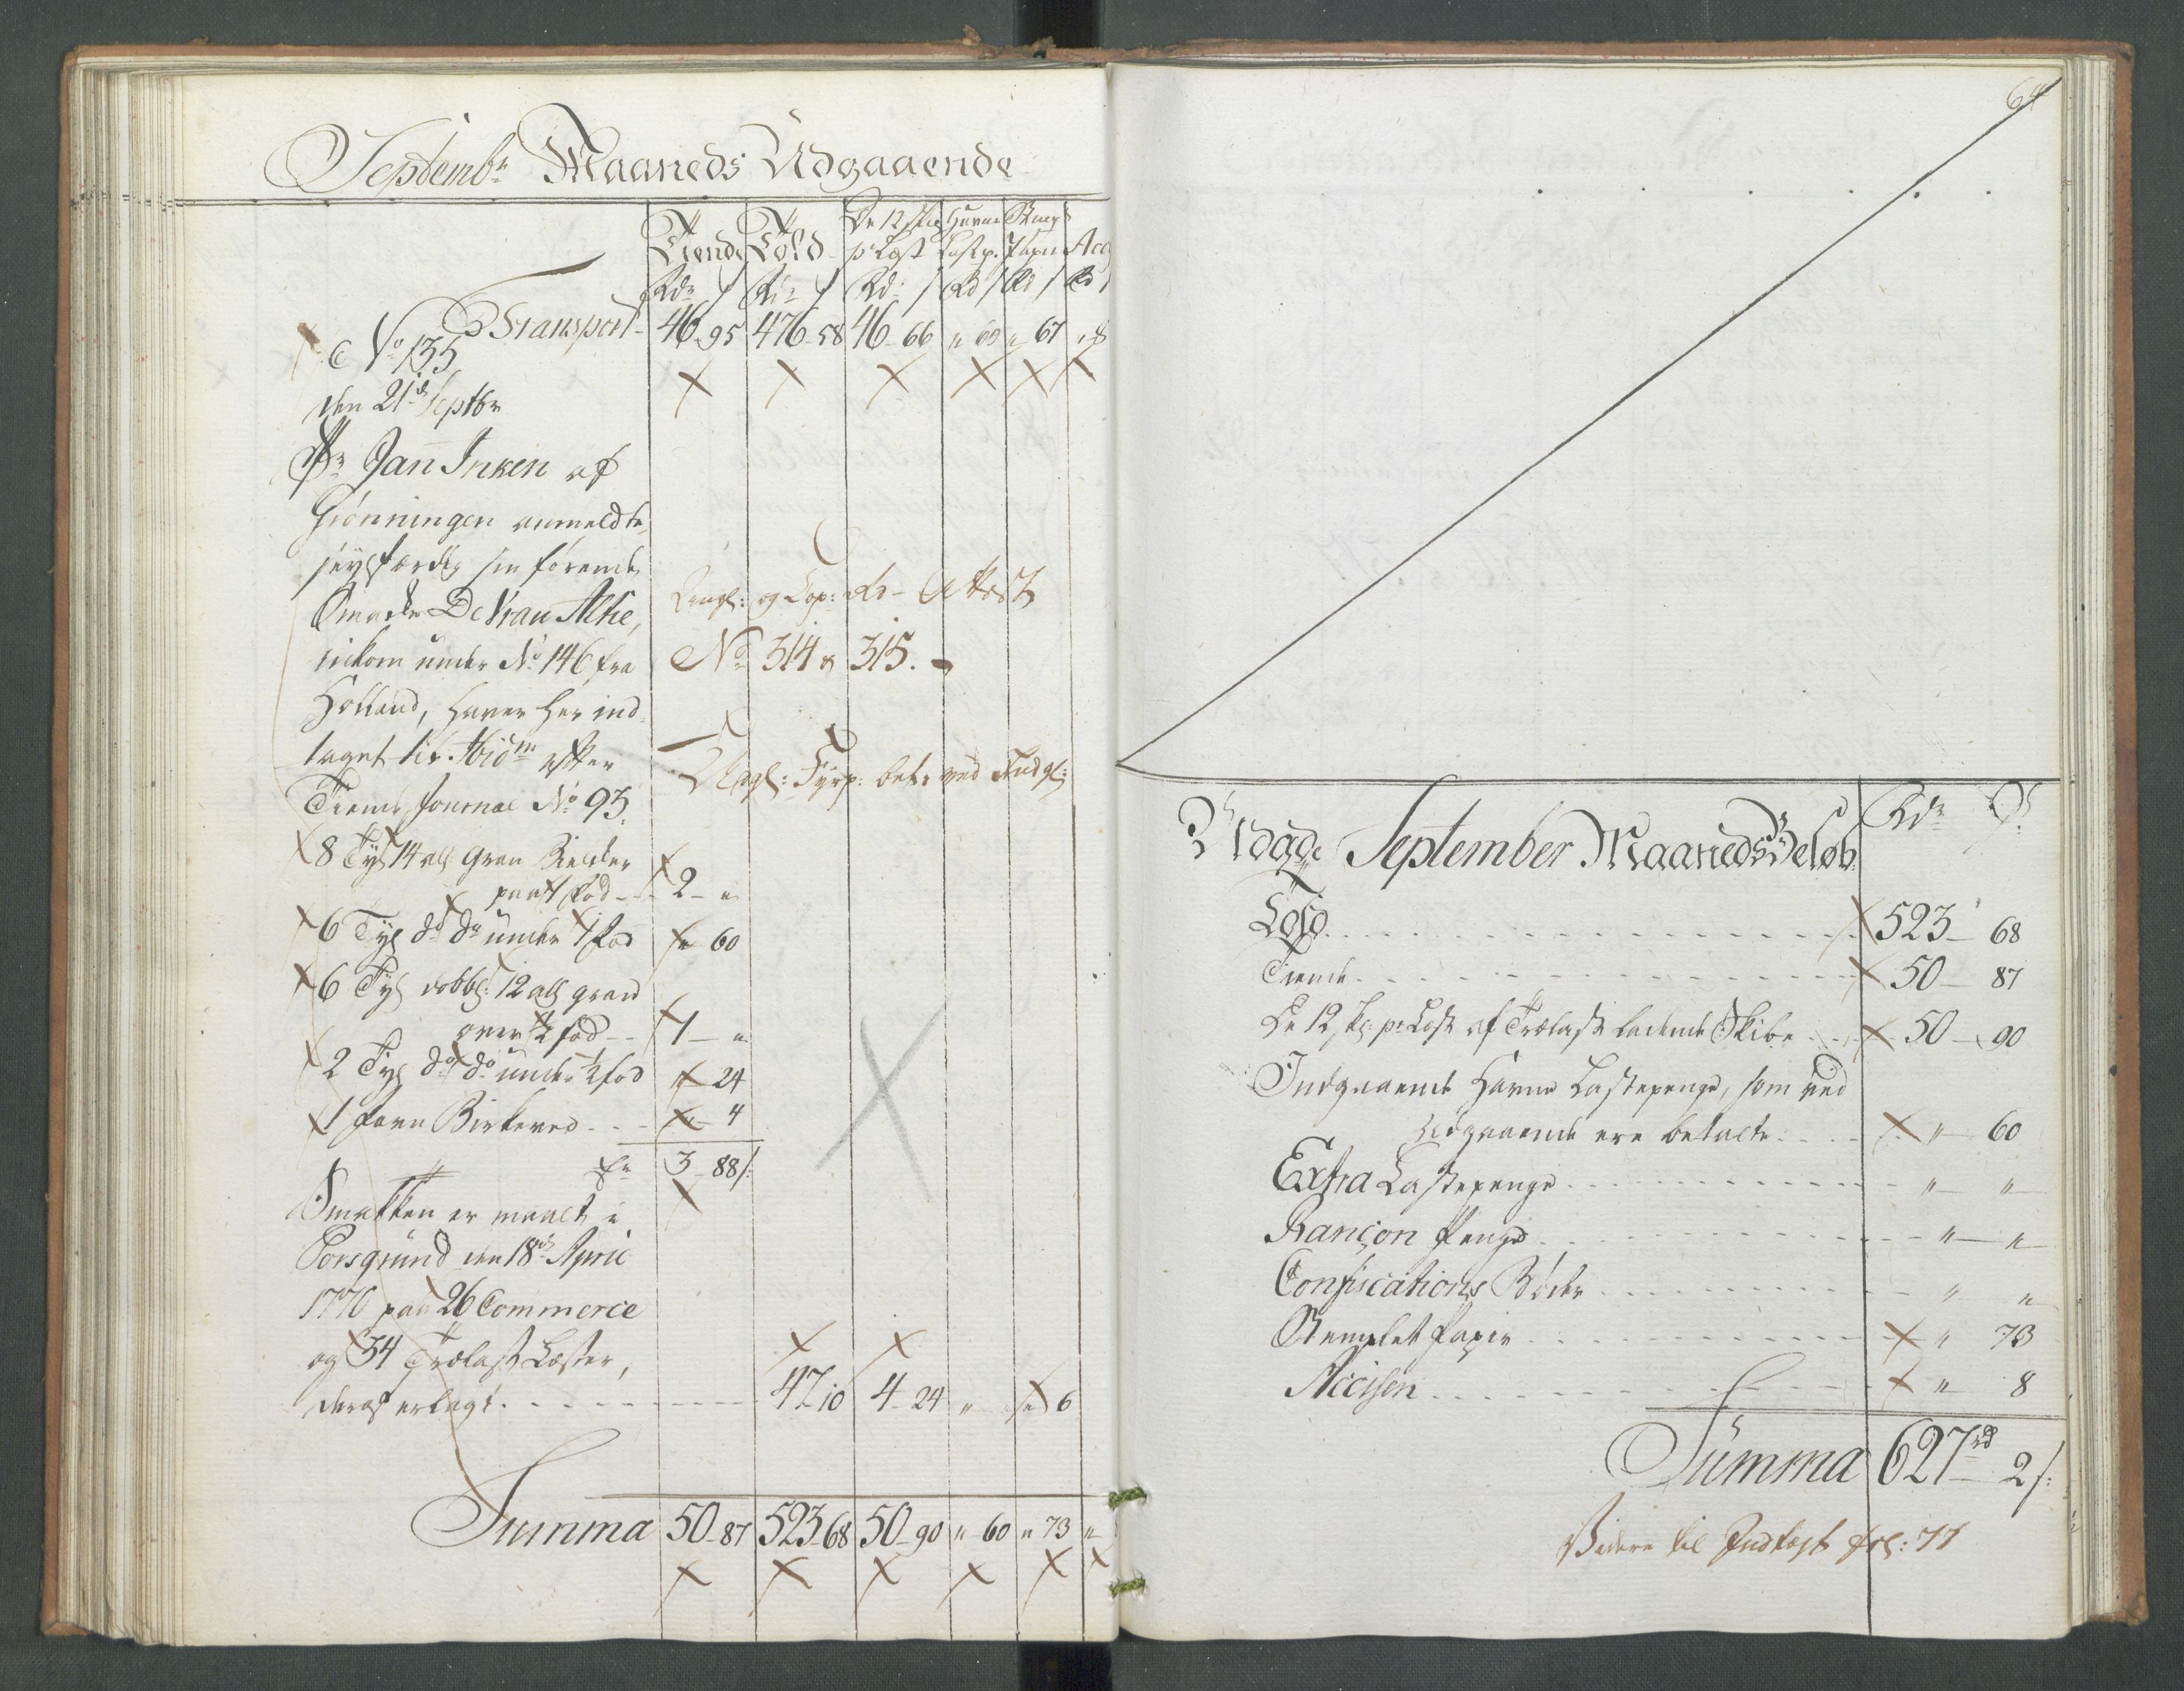 Septembr Maaneds Udgaaende
Tiende Told De 12 skl pr Læst Havne Lastp. Stemp Papir Acc
Rdr s Rdr s Rdr s Rd s Rd s Rd s
Transport 46 95 476 58 46 66 " 60 " 67 " 8
No 135
den 21de Septbr
Skr Jan Inken af
Grönningen anmeldte
seylfærdig sin förende
Smacke De Vrau Alke,
inkom under No 146 fra
Holland, haver her ind
taget til Ibidm efter
Tiende Journal No 93.
Attest
No 314 & 315.
Fyrp: bet: ved Indgl:
8 Tyl 14 all gran Bielcker
paa 1 fod - - 2 - "
6 Tyl do do under 1 fod " 60
6 Tyl dobbl: 12 all gran
over ½ fod - - 1 - "
2 Tyl do do under ½ fod " 24
1 favn Birkeved - - - " 4
er 3 - 88 s:
Smakken er maalt i
Porsgrund den 18de April
1770 paa 26 Commerce
og 34 Trælast Læster,
deraf erlagt - - - 47 10 4 - 24 " " 6
Summa 50 - 87 523 68 50 - 90 " 60 " 73 "
64
Udgde September Maaneds Beløb Rdr s
Told - - - 523 - 68
Tiende - - - 50 - 87
De 12 skl pr Læst af Trælast ladende Skibe - - - 50 - 90
Indgaaende Havne Lastepenge, som ved
Udgaaende ere betalte - - - " 60
Extra Lastepenge - - - " "
Rançon Penge - - - " "
Confiscations Bøder - - - " "
Stemplet Papir - - - " 73
Accisen - - - " 8
Summa 627rd 2 s:
Videre til Indtægt fol: 77